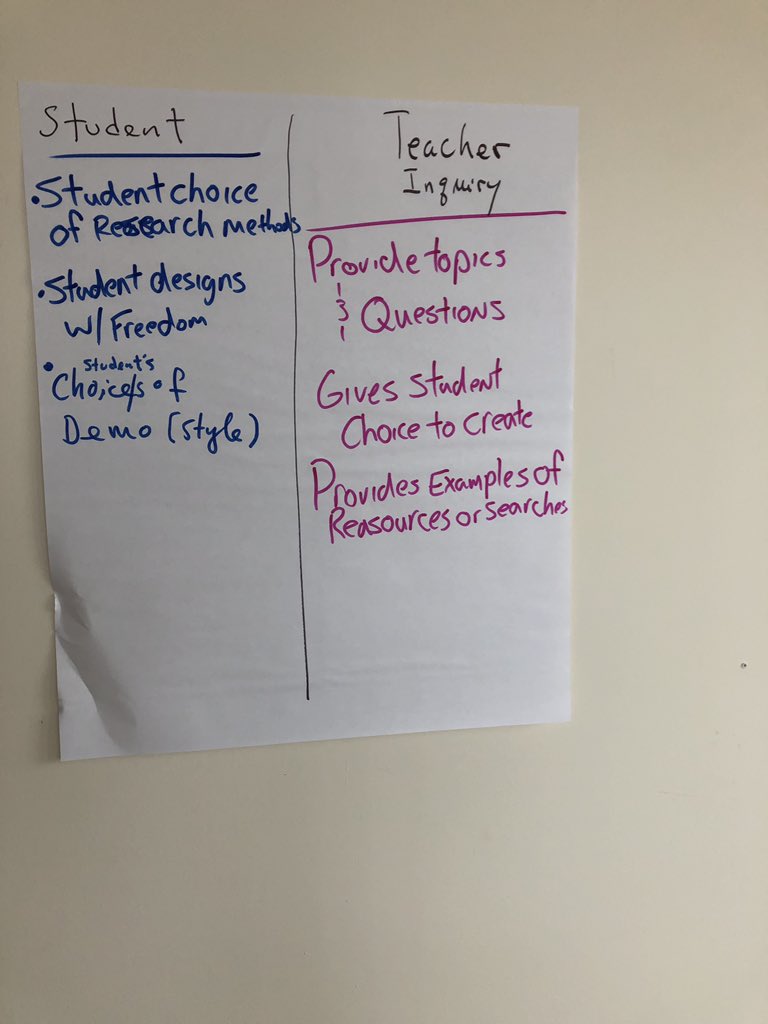 Student
• Student choice
of Research methods
• Student designs
w/ Freedom
• Student's
Choice/s of
Demo (style)
Teacher
Inquiry
Provide topics
& Questions
Gives Student
Choice to Create
Provides Examples of
Reasources or searches